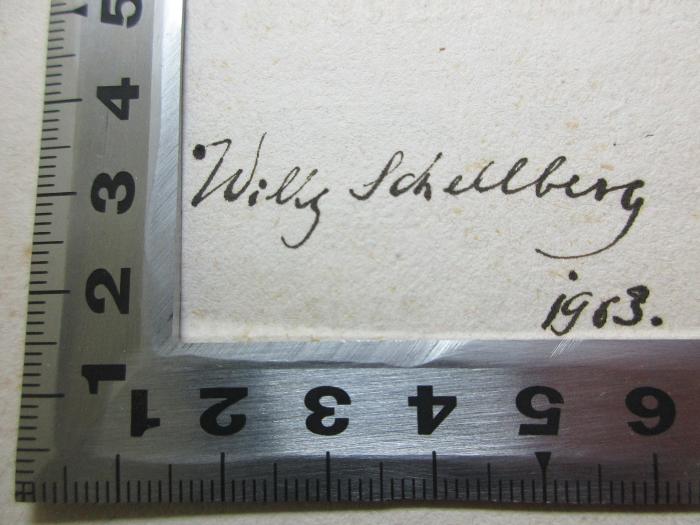 Willy Schellberg
1903.
5
4
3
2
1
1 2 3 4 5 6